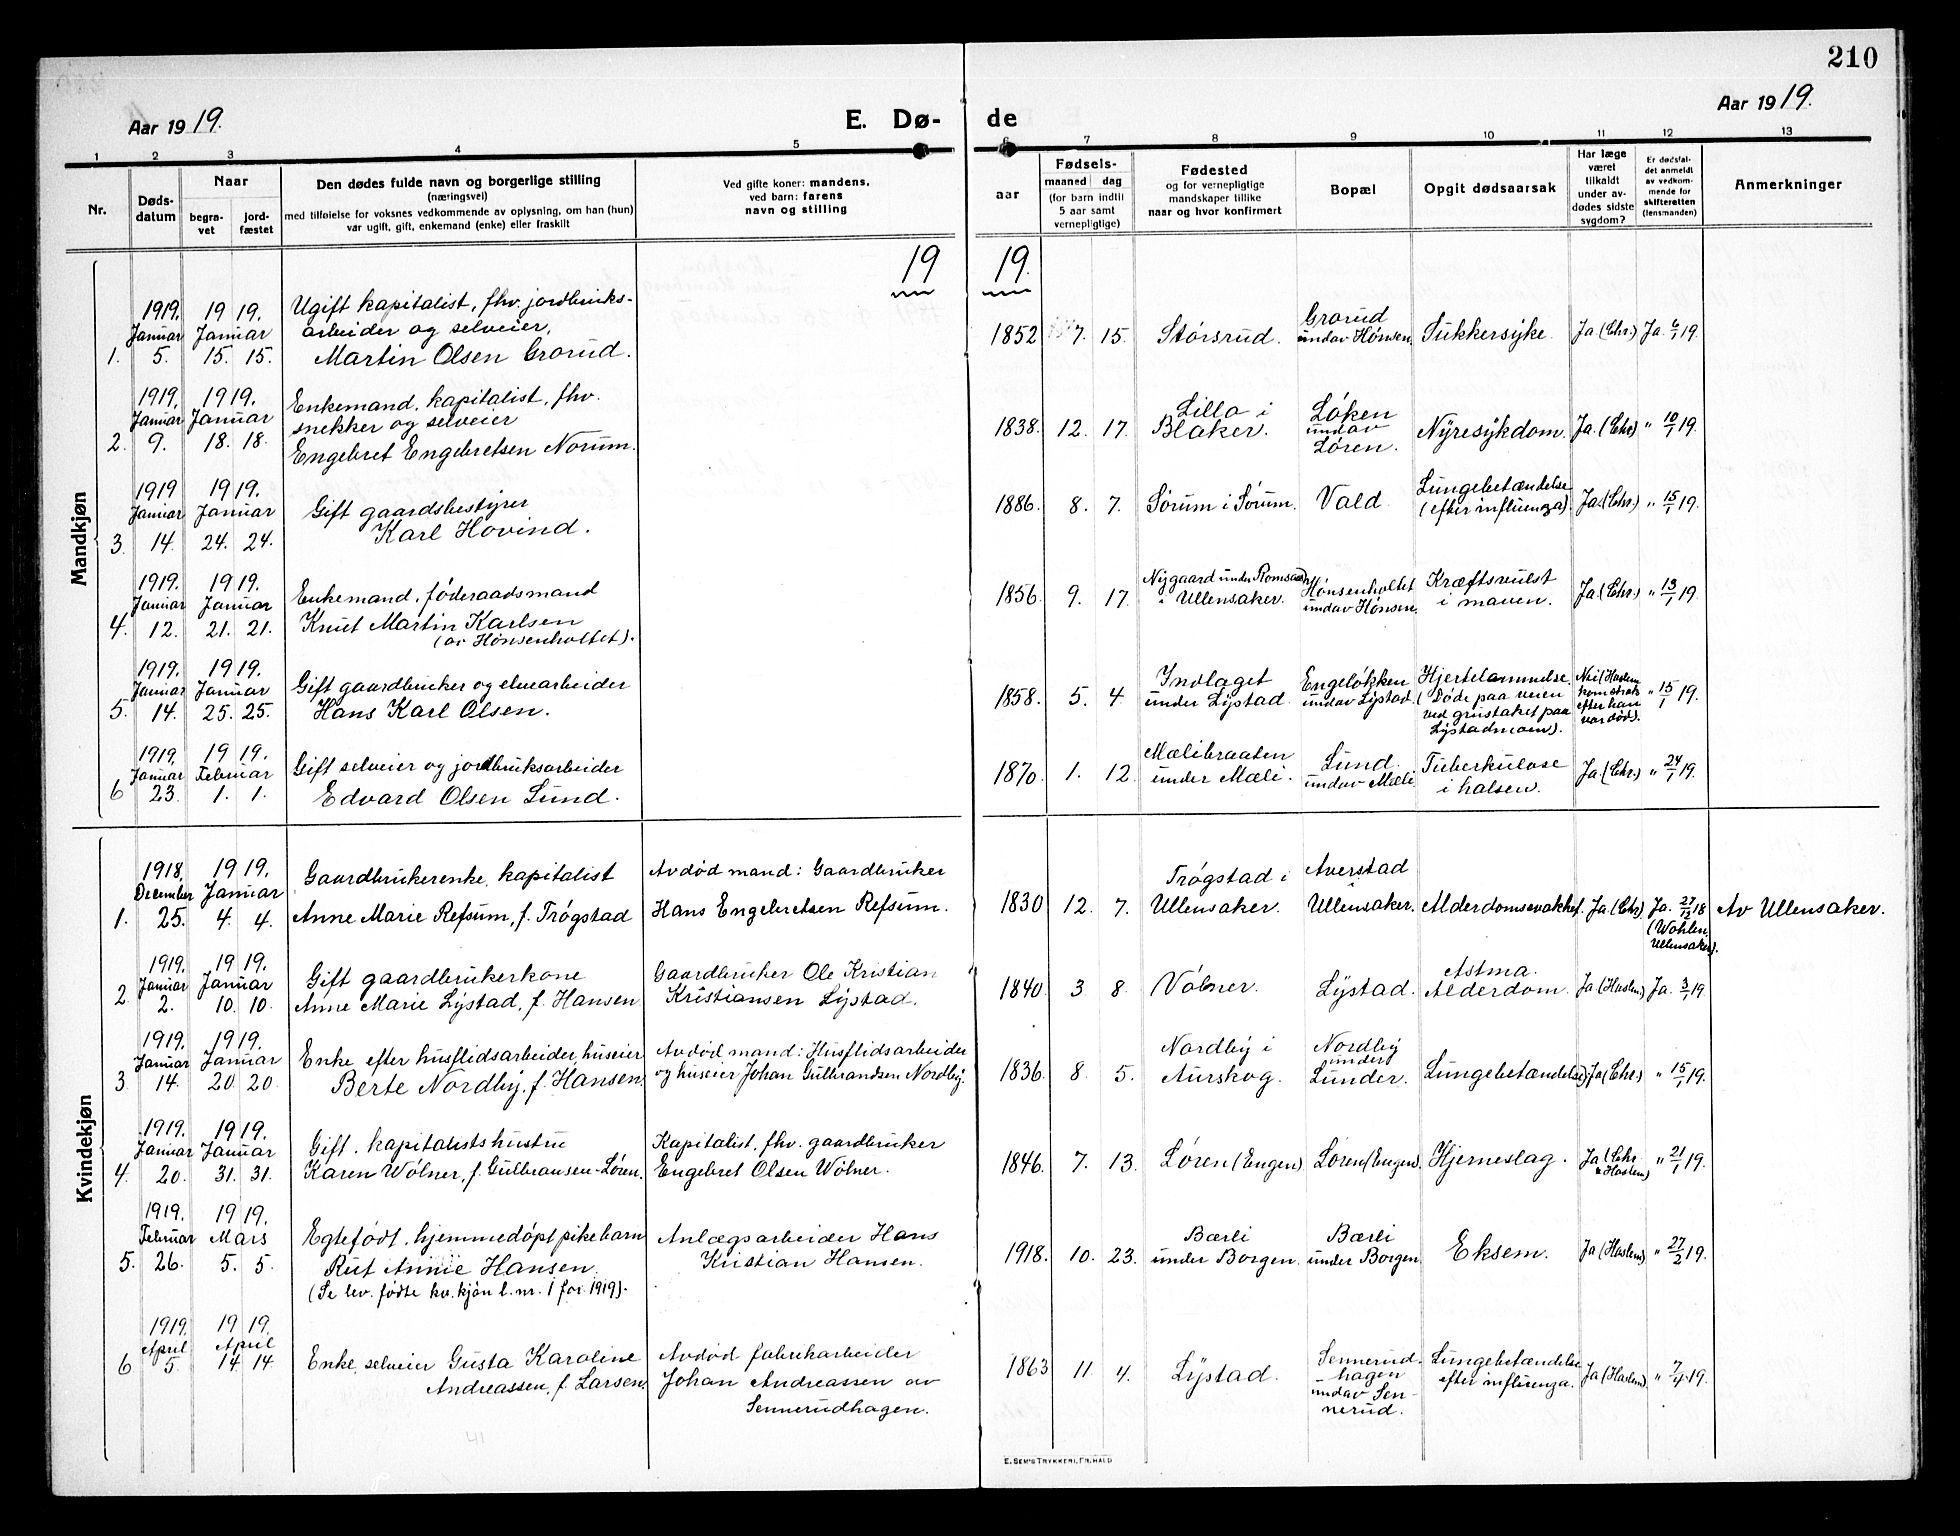 210
Aar 1919.
E. Dø-
de
Aar 1919.
1 2 3 4 5 6 7 8 9 10 11 12 13
Nr.
Døds-
datum
Naar
begra-
vet
jord-
fæstet
Den dødes fulde navn og borgerlige stilling
(næringsvei)
med tilføielse for voksnes vedkommende av oplysning, om han (hun)
var ugift, gift, enkemand (enke) eller fraskilt
Ved gifte koner: mandens,
ved barn: farens
navn og stilling
aar
Fødsels-
maaned dag
(for barn indtil
5 aar samt
vernepligtige)
Fødested
og for vernepligtige
mandskaper tillike
naar og hvor konfirmert
Bopæl
Opgit dødsaarsak
Har læge
været
tilkaldt
under av-
dødes sidste
sygdom?
Er dødsfal-
det anmeldt
av vedkom-
mende for
skifteretten
(lensmanden)
Anmerkninger
19 19.
Mandkjøn
1919. 19 19.
Januar Januar
1. 5. 15. 15.
Ugift kapitalist, fhv. jordbruks-
arbeider og selveier,
Martin Olsen Grorud.
1852 7. 15. Størsrud.
Grorud
undav Hønsen.
Sukkersyke. Ja (Chr.) Ja. 6/1 19.
1919. 1919.
Januar Januar
2. 9. 18. 18.
Enkemand, kapitalist, fhv.
snekker og selveier
Engebret Engebretsen Norum.
1838. 12. 17.
Lillo i
Blaker.
Løken
undav
Løren.
Nyresykdom. Ja. (Chr) " 10/1 19.
1919 19 19.
Januar Januar
3. 14. 24. 24.
Gift gaardsbestyrer
Karl Hovind.
1886. 8. 7. Sørum i Sørum. Vald.
Lungebetændelse
(efter influenza).
Ja. (Chr.) " 15/1 19.
1919. 19 19.
Januar Januar
4. 12. 21. 21.
Enkemand, føderaadsmand
Knut Martin Karlsen
(av Hønsenholtet).
1856. 9. 17.
Nygaard under Romsaas
i Ullensaker.
Hønsenholtet
undav Hønsen.
Kræftsvulst
i maven.
Ja. (Chr.) " 13/1 19.
1919. 19 19.
Januar Januar
5. 14. 25. 25.
Gift gaardbruker og elvearbeider
Hans Karl Olsen.
1858. 5. 4.
Indlaget
under Lystad.
Engeløkken
undav Lystad.
Hjertelammelse.
(Døde paa veien
ved grustaket paa
Lystadmoen).
Nei (Haslem
kom straks
efter han
var død).
" 15/1 19.
1919, 19 19.
Januar Februar
6 23. 1. 1.
Gift selveier og jordbruksarbeider
Edvard Olsen Lund.
1870. 1. 12.
Mælibraaten
under Mæli.
Lund.
undav Mæli
Tuberkulose
i halsen.
Ja. (Chr.) " 24/1 19.
Kvindekjøn
1918, 19 19.
December Januar
1. 25. 4. 4.
Gaardbrukerenke, kapitalist
Anne Marie Refsum, f. Trøgstad
Avdød mand: Gaardbruker
Hans Engebretsen Refsum.
1830 12. 7.
Trøgstad i
Ullensaker.
Averstad
i
Ullensaker.
Alderdomssvakhet. Ja (Chr)
Ja. 27/12 18
(Wohlen,
Ullensaker).
Av Ullensaker.
1919. 19 19.
Januar Januar
2. 2. 10. 10.
Gift gaardbrukerkone
Anne Marie Lystad, f. Hansen
Gaardbruker Ole Kristian
Kristiansen Lystad.
1840. 3 8. Vølner. Lystad.
Astma.
Alderdom.
Ja (Haslem) Ja. 3/1 19.
1919. 1919.
Januar Januar
3. 14. 20. 20.
Enke efter husflidsarbeider, huseier
Berte Nordby, f. Hansen.
Avdød mand: Husflidsarbeider
og huseier Johan Gulbrandsen Nordby.
1836. 8. 5.
Nordby i
Aurskog.
Nordby
under
Lunder.
Lungebetændelse. Ja (Chr.) " 15/1 19.
1919. 19 19.
Januar Januar
4. 20. 31. 31.
Gift, kapitalistshustru
Karen Wølner, f. Gulbransen-Løren.
Kapitalist, fhv. gaardbruker
Engebret Olsen Wølner.
1846. 7. 13. Løren (Engen) Løren (Engen). Hjerneslag.
Ja (Chr.
& Haslem)
" 21/1 19.
1919. 19 19.
Februar Mars
5. 26. 5. 5.
Egtefødt, hjemmedøpt pikebarn
Rut Annie Hansen.
(Se lev. fødte kv. kjøn l. nr. 1 for 1919).
Anlægsarbeider Hans
Kristian Hansen.
1918. 10. 23.
Bærli
under Borgen.
Bærli
under Borgen.
Eksem. Ja (Haslem) " 27/2 19.
1919. 19 19.
April April
6 5. 14 14
Enke, selveier Gusta Karoline
Andreassen, f. Larsen.
Avdød fabrikarbeider
Johan Andreassen av
Sennerudhagen.
1863 11. 4. Lystad.
Sennerud-
hagen
undav Sen-
nerud.
Lungebetændelse
efter influenza.
Ja (Haslem) " 7/4 19.
E. SEM'S TRYKKERI, FR.HALD